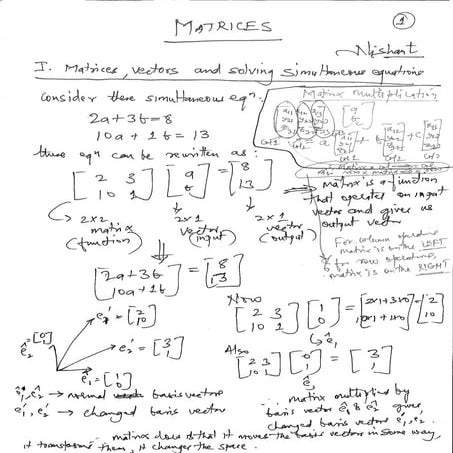 MATRICES
1
Nishant
I. Matrices, vectors and solving simultaneous equations
Consider these simultaneous eqn:
2a+3b=8
10a+1b=13
these eqn can be rewritten as:
[2 3 10 1] [a b] = [8 13]
2x2 matrix (function)
2x1 vector (input)
2x1 vector (output)
[2a+3b 10a+1b] = [8 13]
Matrix multiplication
Matrix is a function
that operates on input
vector and gives us
output vector
For column operations
matrix is on the LEFT
for row operations,
matrix is on the RIGHT
Now
[2 3 10 1] [1 0] = [2x1+3x0 10x1+1x0] = [2 10]
Also
[2 3 10 1] [0 1] = [3 1]
e1' = [2 10]
e2' = [3 1]
ê2 = [0 1]
ê1 = [1 0]
ê1, ê2 → normal basis vectors
e1', e2' → changed basis vector
∴ matrix multiplied by
basis vector ê1 & ê2 gives
changed basis vectors e1', e2'.
matrix does is that it moves the basis vectors in some way,
it transforms them, it changes the space.